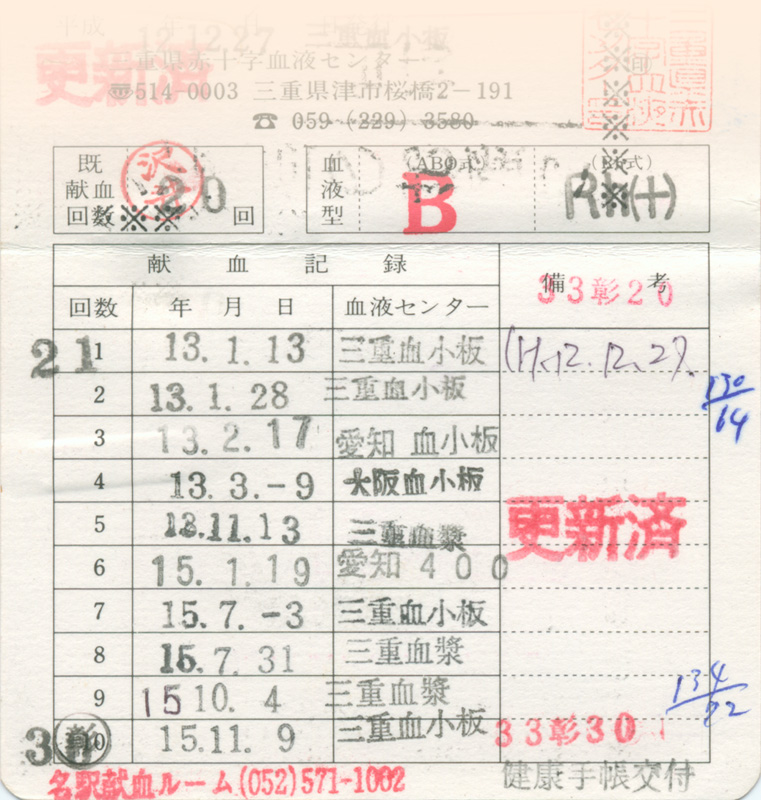 平成
12.12.27 三重血小板
更新済
三重県赤十字血液センター 印
☎514-0003 三重県津市桜橋2-191
☎ 059 (229) 3580
既献血回数 20 回
血液型 (ABO式) B (Rh式) Rh(+)
献血記録 備考
回数 年 月 日 血液センター 33彰20
21
1 13.1.13 三重血小板 (H.12.12.27.
2 13.1.28 三重血小板 130/64
3 13.2.17 愛知 血小板
4 13.3.-9 大阪血小板
5 13.11.13 三重血漿 更新済
6 15.1.19 愛知400
7 15.7.-3 三重血小板
8 15.7.31 三重血漿
9 15 10.4 三重血漿
10 15.11.9 三重血小板 33彰30
健康手帳交付
名駅献血ルーム(052)571-1002